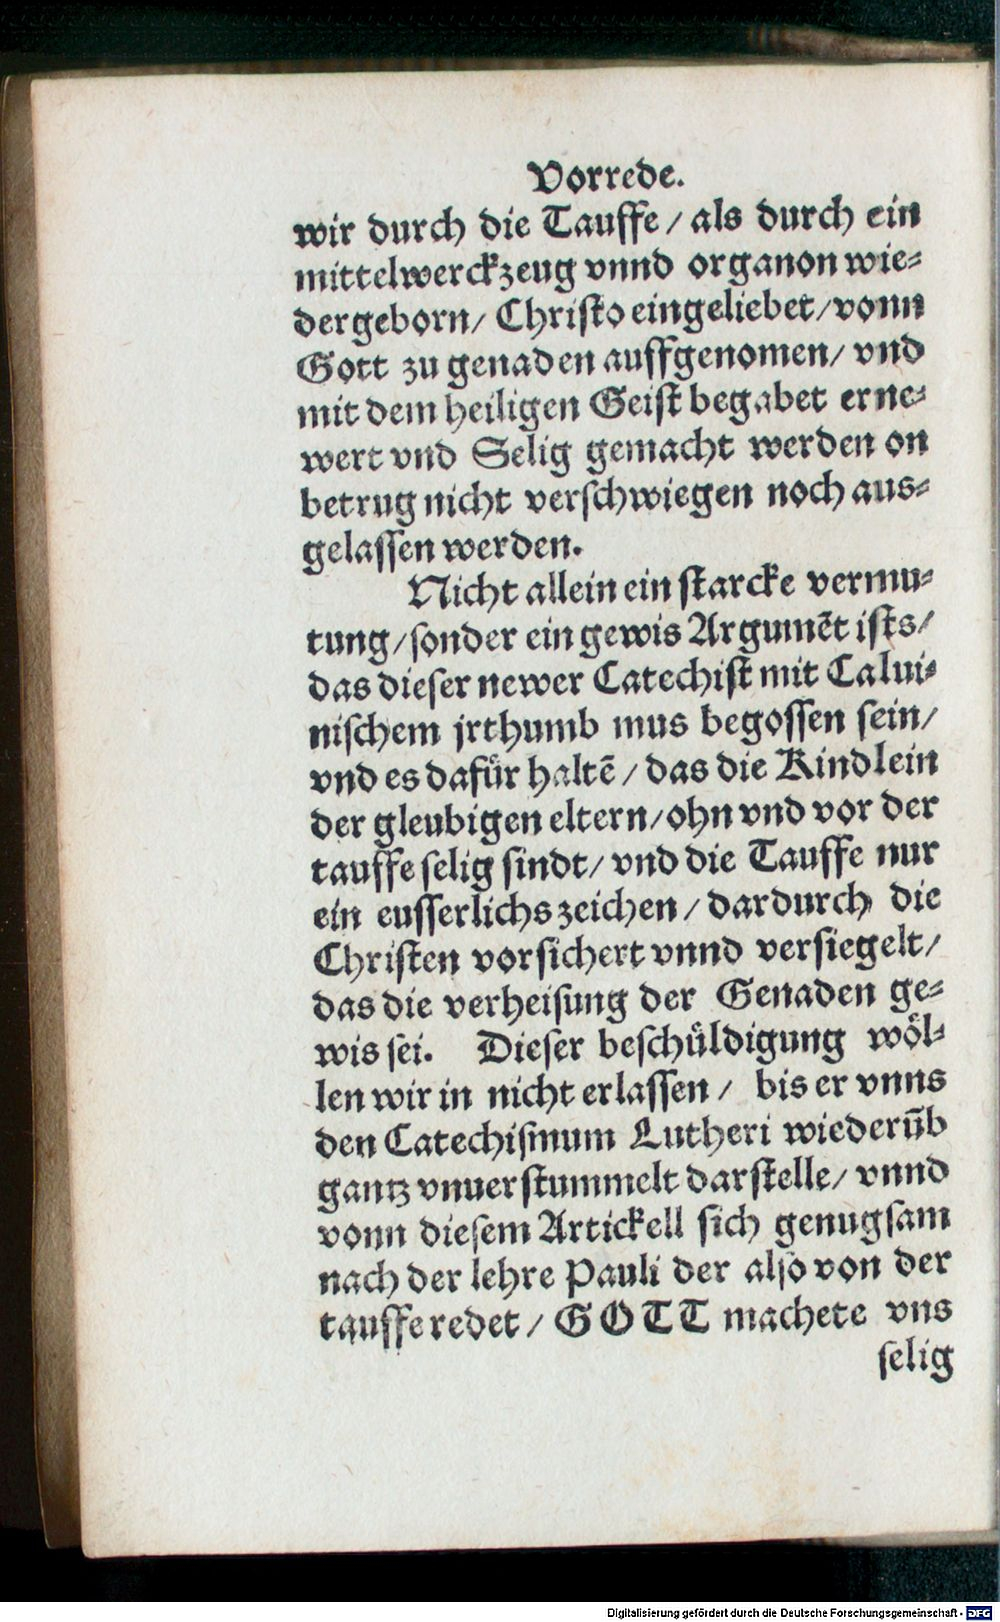 Vorrede.
wir durch die Tauffe / als durch ein
mittelwerckzeug vnnd organon wie⸗
dergeborn / Christo eingeliebet / vonn
Gott zu genaden auffgenomen / vnd
mit dem heiligen Geist begabet erne⸗
wert vnd Selig gemacht werden on
betrug nicht verschwiegen noch aus⸗
gelassen werden.
Nicht allein ein starcke vermu⸗
tung / sonder ein gewis Argumẽt ists /
das dieser newer Catechist mit Calui⸗
nischem jrthumb mus begossen sein /
vnd es dafür haltẽ / das die Kindlein
der gleubigen eltern / ohn vnd vor der
tauffe selig sindt / vnd die Tauffe nur
ein eusserlichs zeichen / dardurch die
Christen vorsichert vnnd versiegelt /
das die verheisung der Genaden ge⸗
wis sei. Dieser beschüldigung wöl⸗
len wir in nicht erlassen / bis er vnns
den Catechismum Lutheri wiederũb
gantz vnuerstummelt darstelle / vnnd
vonn diesem Artickell sich genugsam
nach der lehre Pauli der also von der
tauffe redet / GOTT machete vns
selig
Digitalisierung gefördert durch die Deutsche Forschungsgemeinschaft - DFG